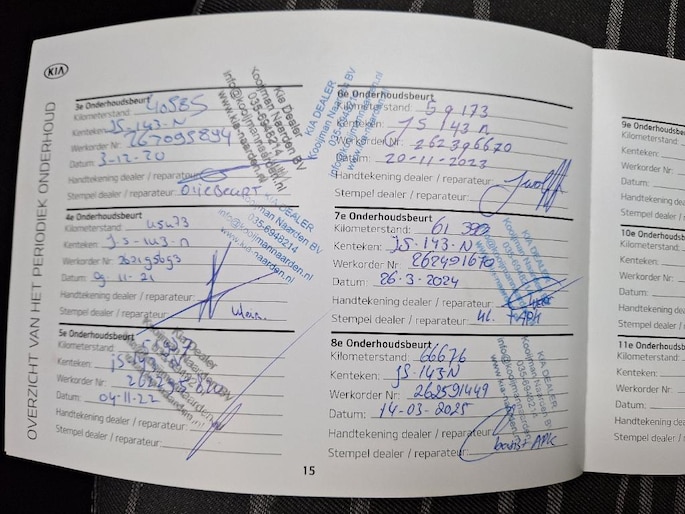 KIA
OVERZICHT VAN HET PERIODIEK ONDERHOUD
3e Onderhoudsbeurt
Kilometerstand: 40585
Kenteken: JS-143-N
Werkorder Nr: 267095894
Datum: 3-12-20
Handtekening dealer / reparateur:
Stempel dealer / reparateur: Oliebeurt
Kia Dealer
Kooijman Naarden BV
035-6948214
info@kooijmannaarden.nl
www.kia-naarden.nl
4e Onderhoudsbeurt
Kilometerstand:
Kenteken: JS-143-N
Werkorder Nr:
Datum: 9-11-21
Handtekening dealer / reparateur:
Stempel dealer / reparateur:
KIA DEALER
Kooijman Naarden BV
035-6948214
info@kooijmannaarden.nl
www.kia-naarden.nl
5e Onderhoudsbeurt
Kilometerstand:
Kenteken:
Werkorder Nr:
Datum: 04-11-22
Handtekening dealer / reparateur:
Stempel dealer / reparateur:
Kia Dealer
6e Onderhoudsbeurt
Kilometerstand: 59173
Kenteken: JS 143 N
Werkorder Nr: 262396670
Datum: 20-11-2023
Handtekening dealer / reparateur:
Stempel dealer / reparateur:
KIA DEALER
Kooijman Naarden BV
7e Onderhoudsbeurt
Kilometerstand: 61
Kenteken: JS-143-N
Werkorder Nr: 262491670
Datum: 26-3-2024
Handtekening dealer / reparateur:
Stempel dealer / reparateur: + APK
KIA DEALER
Kooijman Naarden BV
8e Onderhoudsbeurt
Kilometerstand: 66676
Kenteken: JS-143-N
Werkorder Nr: 262591449
Datum: 14-03-2025
Handtekening dealer / reparateur:
Stempel dealer / reparateur: basis + APK
KIA DEALER
Kooijman Naarden BV
035-6948214
info@kooijmannaarden.nl
www.kia-naarden.nl
15
9e Onderhoudsbeu
Kilometerstand:
Kenteken:
Werkorder Nr:
Datum:
Handtekening dealer
Stempel dealer / re
10e Onderhoudsb
Kilometerstand:
Kenteken:
Werkorder Nr:
Datum:
Handtekening de
Stempel dealer /
11e Onderhouds
Kilometerstand:
Kenteken:
Werkorder Nr:
Datum:
Handtekening
Stempel dealer